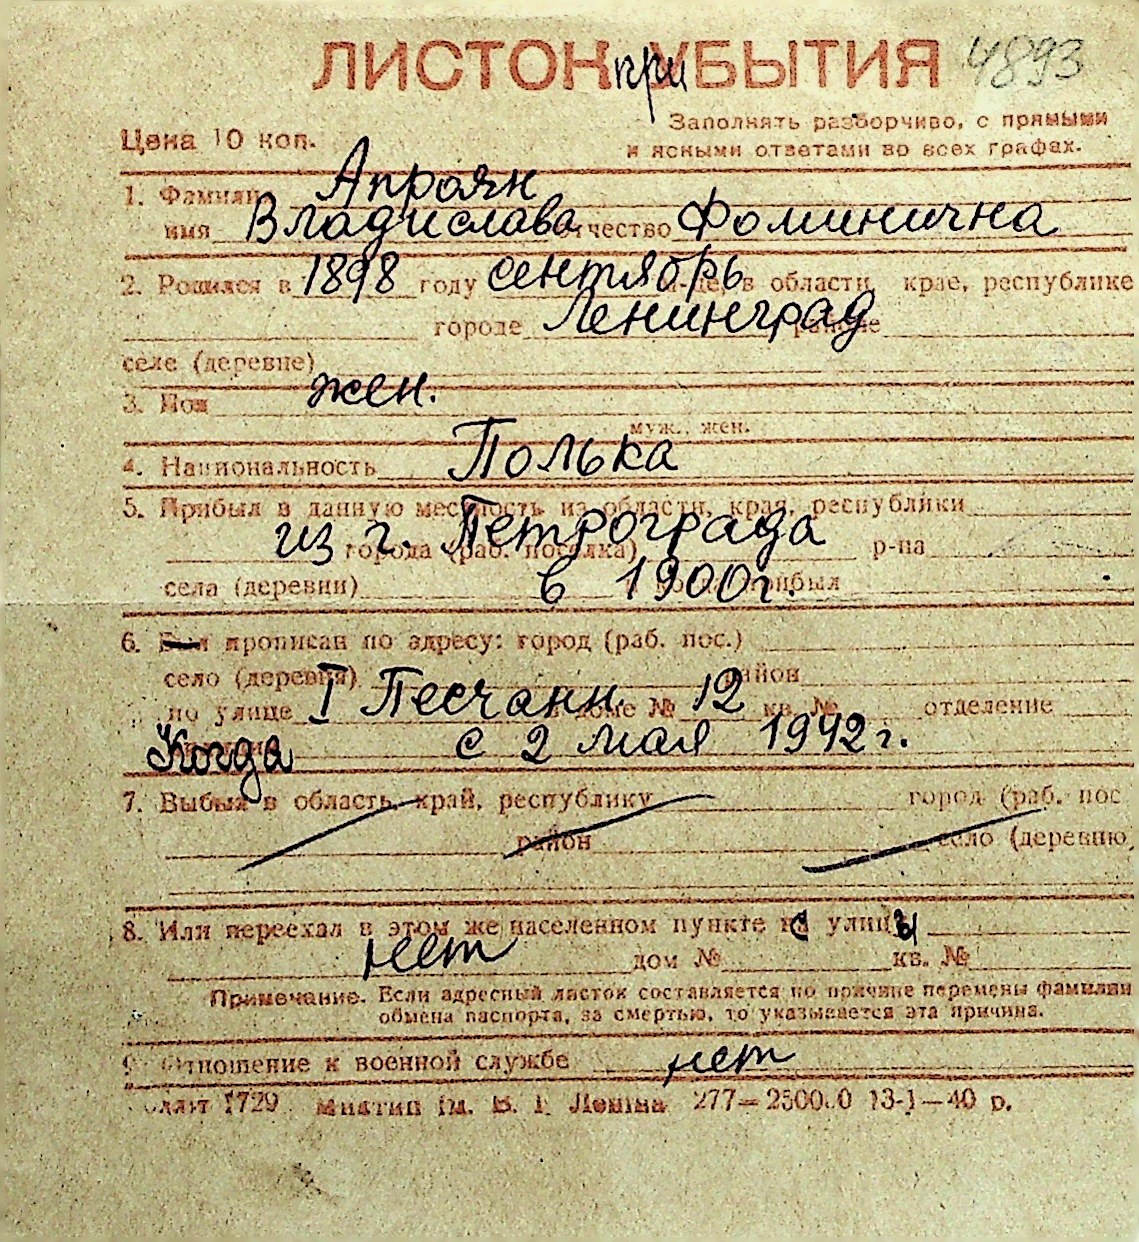 ЛИСТОК при УБЫТИЯ 4893
Цена 10 коп.
Заполнять разборчиво, с прямыми
и ясными ответами во всех графах.
1. Фамилия Апроян
имя Владислава отчество Фоминична
2. Родился в 1898 году сентябрь м-це, в области, крае, республике
городе Ленинград районе
селе (деревне)
3. Пол жен.
муж., жен.
4. Национальность Полька
5. Прибыл в данную местность из области, края, республики
из г. Петрограда
города (раб. поселка) р-на
села (деревни) в 1900г. прибыл
6. Был прописан по адресу: город (раб. пос.)
село (деревня) район
по улице I Песчанн. в доме № 12 кв. № отделение
Когда с 2 мая 1942 г.
7. Выбыл в область, край, республику город (раб. пос
район село (деревню,
8. Или переехал в этом же населенном пункте с улицы
нет дом № кв. №
Примечание. Если адресный листок составляется по причине перемены фамилии
обмена паспорта, за смертью, то указывается эта причина.
9. Отношение к военной службе нет
1729 им. В. Ленина 277— 13-I—40 р.